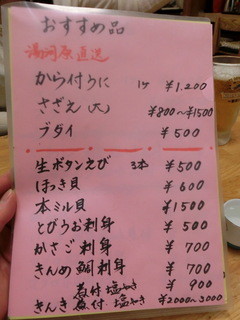 おすすめ品
湯河原直送
から付うに 1ケ ¥1,200
さざえ(大) ¥800〜¥1500
ブダイ ¥500
生ボタンえび 3本 ¥500
ほっき貝 ¥600
本ミル貝 ¥1500
とびうお刺身 ¥500
かさご刺身 ¥700
きんめ鯛刺身 ¥700
煮付 塩やき ¥900
きんき 煮付・塩やき ¥2000〜3000